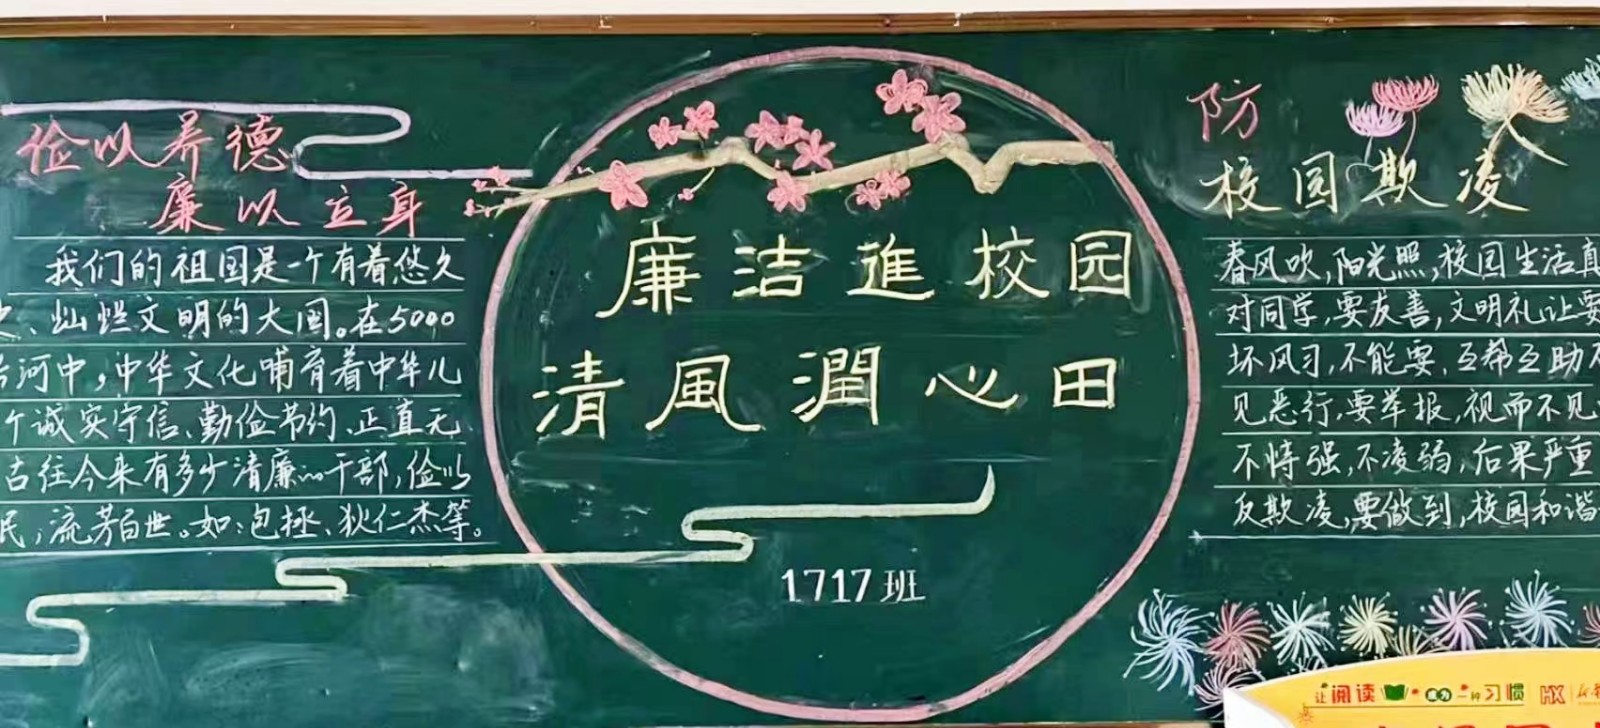 俭以养德
廉以立身
我们的祖国是一个有着悠久
史、灿烂文明的大国。在5000
河中,中华文化哺育着中华儿
个诚实守信、勤俭节约、正直无
古往今来有多少清廉的干部,俭以
民,流芳百世。如:包拯、狄仁杰等。
廉洁進校园
清風潤心田
1717班
防
校园欺凌
春风吹,阳光照,校园生活真
对同学,要友善,文明礼让要
坏风习,不能要,互帮互助不
见恶行,要举报,视而不见
不恃强,不凌弱,后果严重
反欺凌,要做到,校园和谐
让阅读成为一种习惯
HX